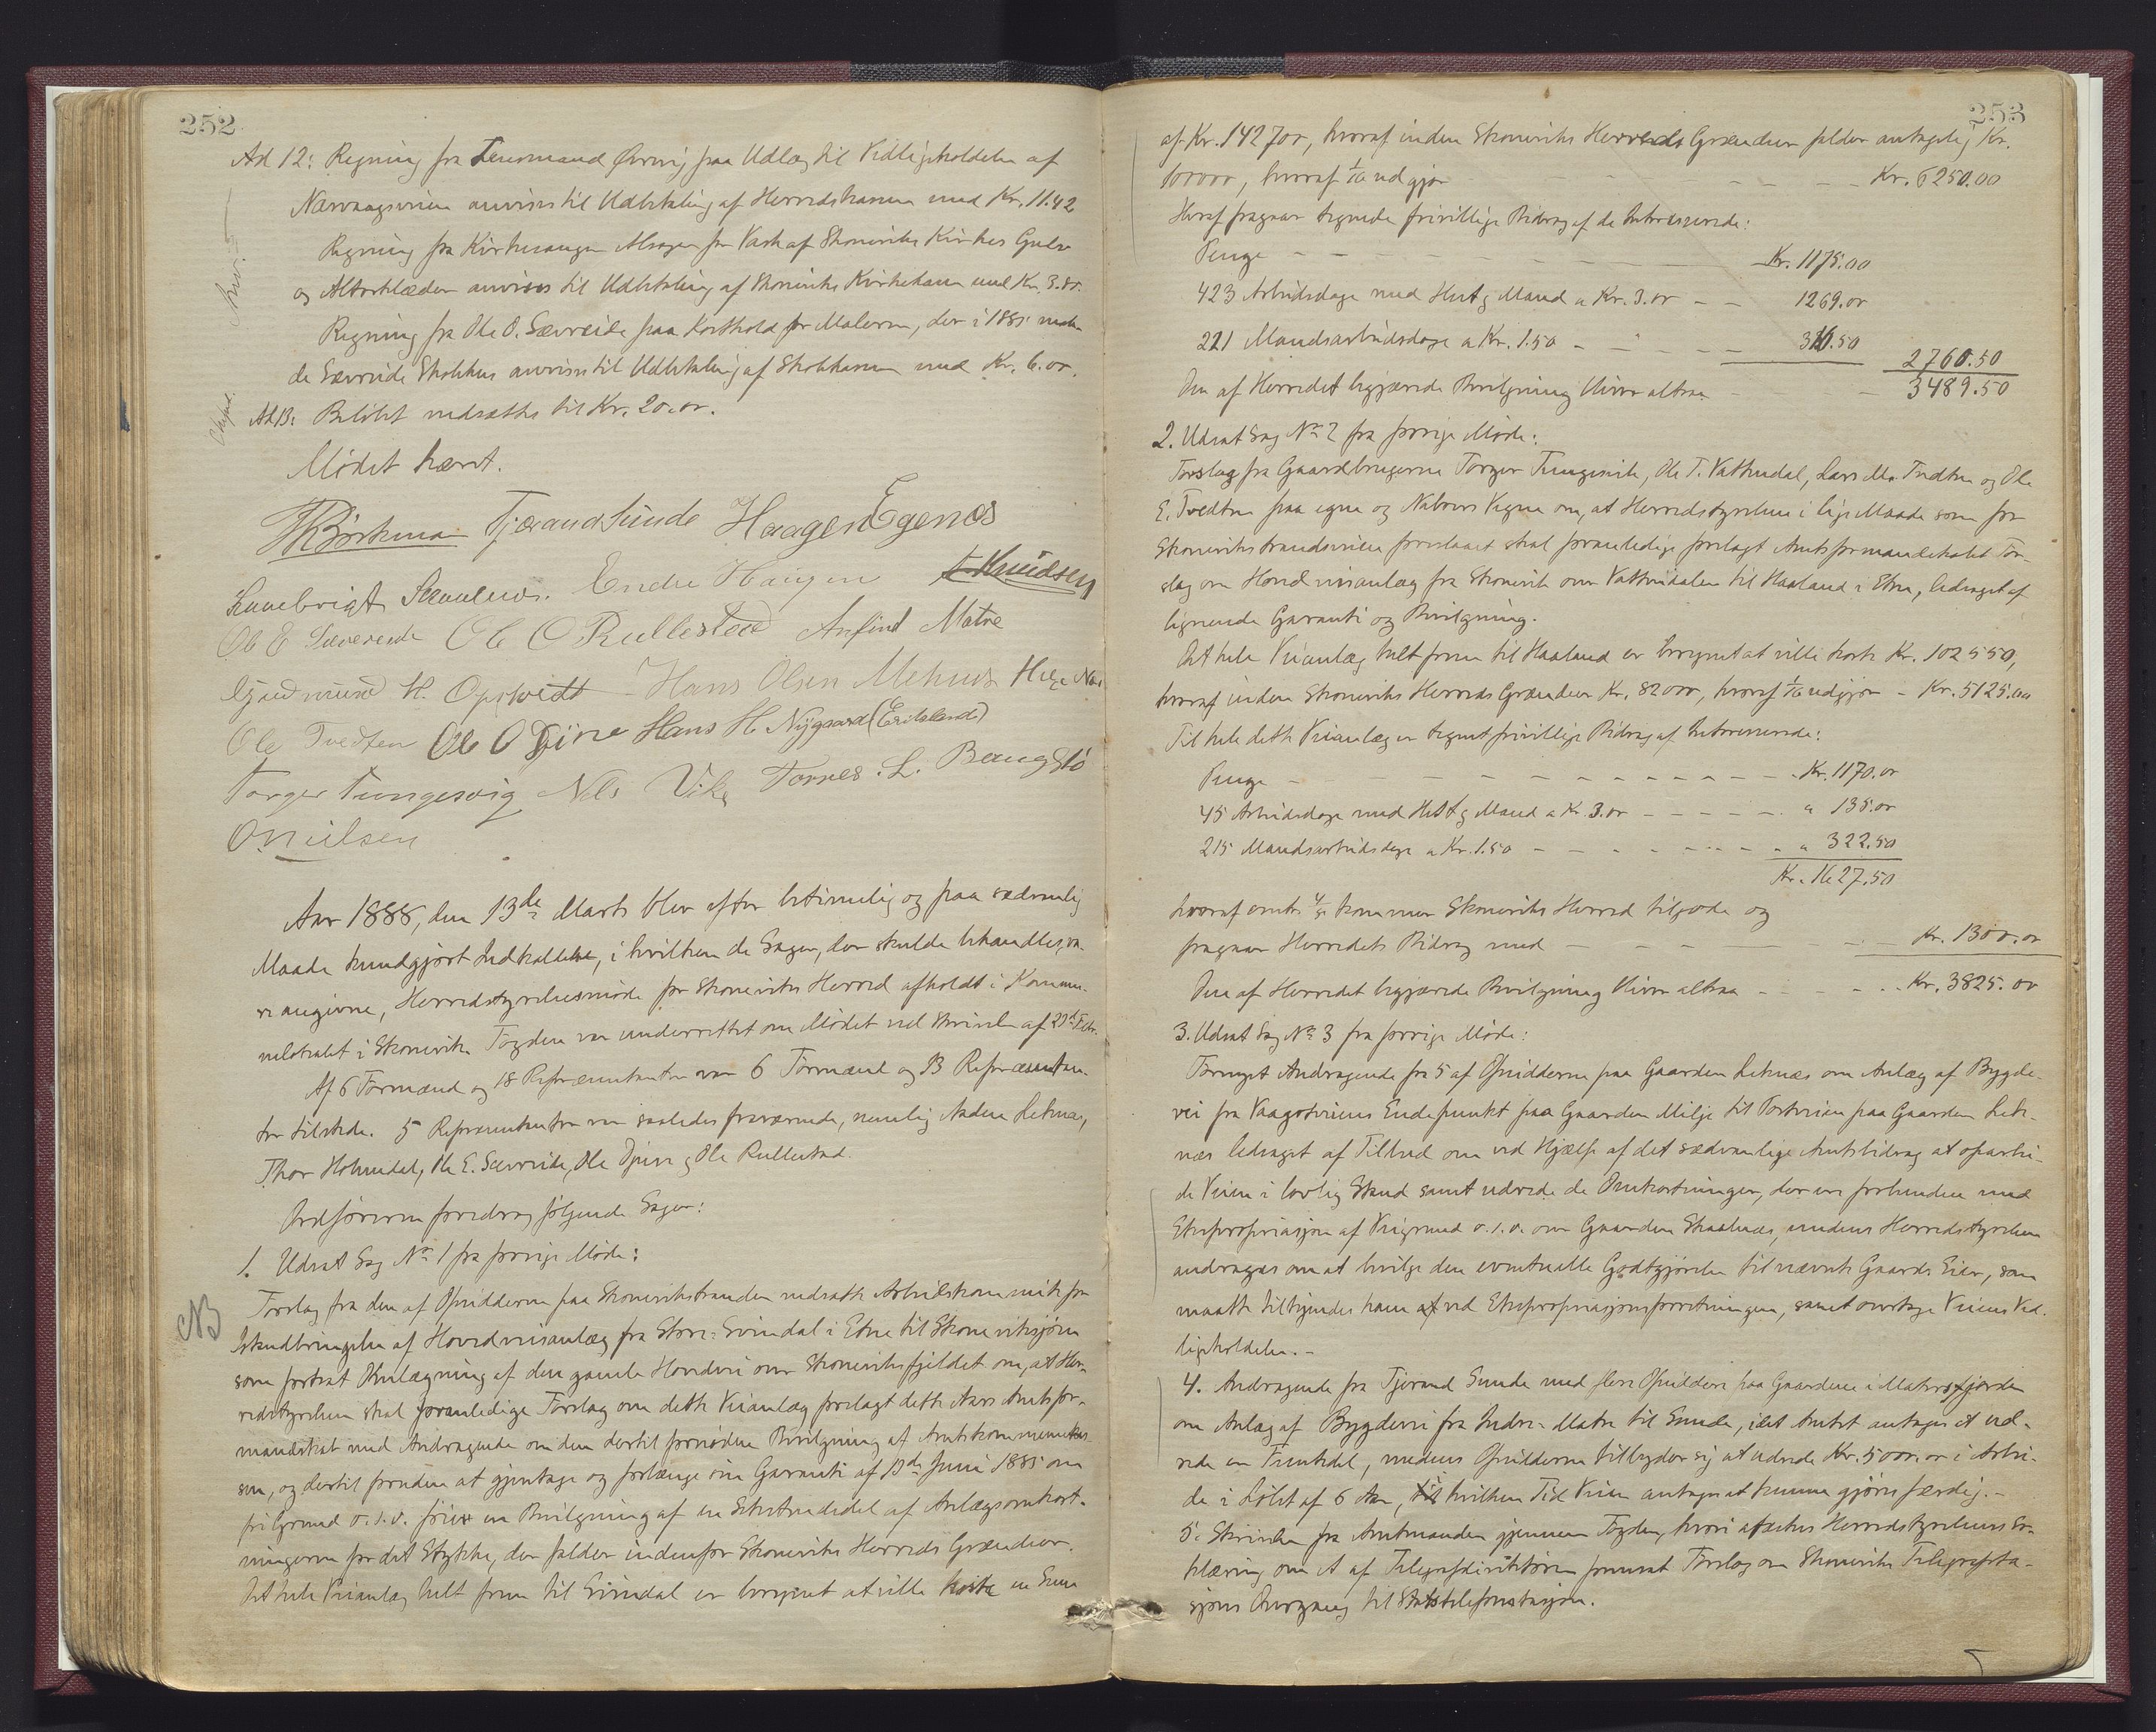 252
Ad 12: Regning fra Lensmand Ørvig paa Udlæg til Vedligeholdelse af
Nærvaagsveien anvises til Udbetaling af Herredskassen med Kr. 11.42
Regning fra Kirkesanger Alsager for Vask af Skoneviks Kirkes Gulv
og Alterklæder anvises til Udbetaling af Skoneviks Kirkekasse med Kr. 3.80.
Regning fra Ole O. Sævreide paa Kosthold for Maleren, der i 1885 male-
de Sævreide Skolehus anvises til Udbetaling af Skolekassen med Kr. 6.00.
Ad 13: Beløbet nedsættes til Kr. 20.00.
Mødet hævet.
Tjeraand Sunde Haagen Egenes
Endre Haugen Knudsen
Ole E Sævereide Ole O Rullestad Anfind Matre
Gudmund H. Opsvidt Hans Olsen Mehus Helge Næs
Ole Tvedten Ole O Djüve Hans H. Nygaard (Eritsland)
Torger Tungesvig Nils Vike Tornes. L. Baugstö
O. Nielsen
Aar 1888, den 13de Marts blev efter betimelig og paa sædvanlig
Maade kundgjort Indkaldelse, i hvilken de Sager, der skulde behandles, va-
re angivne, Herredstyrelsesmøde for Skoneviks Herred afholdt i Kommu-
nelokalet i Skonevik. Fogden var underrettet om Mødet ved Skrivelse af 23de Febr.
Af 6 Formænd og 18 Repræsentanter var 6 Formænd og 13 Repræsentan-
ter tilstede. 5 Repræsentanter var saaledes fraværende, nemlig Anders Leknæs,
Thor Holmedal, Ole E. Sævreide, Ole Djuve og Ole Rullestad.
Ordføreren foredrog følgende Sager:
1. Udsat Sag No 1 fra forrige Møde:
NB
Forslag fra den af Opsidderne paa Skoneviksstranden nedsatte Arbeidskommite for
Istandbringelse af Hovedveisanlæg fra Store-Svindal i Etne til Skoneviksjøen
som fortsat Omlægning af den gamle Hovedvei over Skoneviksfjeldet om, at Her-
redstyrelsen skal foranledige Forslag om dette Veianlæg forelagt dette Aars Amtsfor-
mandskab med Andragende om den dertil fornødne Bevilgning af Amtskommunekas-
sen, og dertil foruden at gjentage og forlænge sin Garanti af 13de Juni 1885 om
fri Grund o. s. v. give en Bevilgning af en Sekstendedel af Anlægsomkost-
ningerne for det Stykke, der falder indenfor Skoneviks Herreds Grændser.
Det hele Veianlæg helt frem til Svindal er beregnet at ville koste en Sum
253
af Kr. 142700, hvoraf inden Skoneviks Herreds Grændser falder antagelig Kr.
100000, hvoraf 1/16 udgjør - - - Kr. 6250.00
Heraf fragaar tegnede frivillige Bidrag af de Interesserede:
Penge - - - Kr. 1175.00
423 Arbeidsdage med Hest og Mand a Kr. 3.00 - - 1269.00
221 Mandsarbeidsdage a Kr. 1.50 - " - - 316.50
2760.50
Den af Herredet begjærede Bevilgning bliver altsaa - - - 3489.50
2. Udsat Sag No 2 fra forrige Møde:
Forslag fra Gaardbrugerne Torger Tungesvik, Ole T. Vattendal, Lars M. Tvedten og Ole
E. Tvedten paa egne og Naboers Vegne om, at Herredstyrelsen i lige Maade som for
Skoneviksstrandsveien foreslaaet skal foranledige forelagt Amtsformandskabet For-
slag om Hovedveisanlæg fra Skonevik over Vattendalen til Haaland i Etne, ledsaget af
lignende Garanti og Bevilgning.
Det hele Veianlæg helt frem til Haaland er beregnet at ville koste Kr. 102550,
hvoraf inden Skoneviks Herreds Grændser Kr. 82000, hvoraf 1/16 udgjør - Kr. 5125.00
Til hele dette Veianlæg er tegnet frivillige Bidrag af Interesserede:
Penge - - - Kr. 1170.00
45 Arbeidsdage med Hest og Mand a Kr. 3.00 - - - " 135.00
215 Mandsarbeidsdage a Kr. 1.50 - - - " 322.50
Kr. 1627.50
hvoraf omtr. 4/5 kommer Skoneviks Herred tilgode og
fragaar Herredets Bidrag med - - - Kr. 1300.00
Den af Herredet begjærede Bevilgning bliver altsaa - - - Kr. 3825.00
3. Udsat Sag No 3 fra forrige Møde:
Fornyet Andragende fra 5 af Opsidderne paa Gaarden Leknæs om Anlæg af Bygde-
vei fra Vaagstveiens Endepunkt paa Gaarden Milje til Postveien paa Gaarden Lek-
næs ledsaget af Tilbud om ved Hjælp af det sædvanlige Amtsbidrag at oparbei-
de Veien i lovlig Stand samt udrede de Omkostninger, der ere forbundne med
Ekspropriasjon af Veigrund o. s. v. over Gaarden Skaalnæs, medens Herredstyrelsen
andrages om at bevilge den eventuelle Godtgjørelse til nævnte Gaards Eier, som
maatte tilkjendes ham ved Ekspropriasjonsforretningen, samt overtage Veiens Ved-
ligeholdelse. -
4. Andragende fra Tjerand Sunde med flere Opsiddere paa Gaardene i Matrefjorden
om Anlæg af Bygdevei fra Indre-Matre til Sunde, idet Amtet antages at ud-
rede en Femtedel, medens Opsidderne tilbyder sig at udrede Kr. 500.00 i Arbei-
de i Løbet af 6 Aar, hvilken Tid Veien antages at kunne gjøres færdig. -
5. Skrivelse fra Amtmanden gjennem Fogden, hvori afæskes Herredstyrelsens Er-
klæring om et af Telegrafdirektøren fremsat Forslag om Skoneviks Telegrafsta-
sjons Overgang til Statstelefonstasjon.